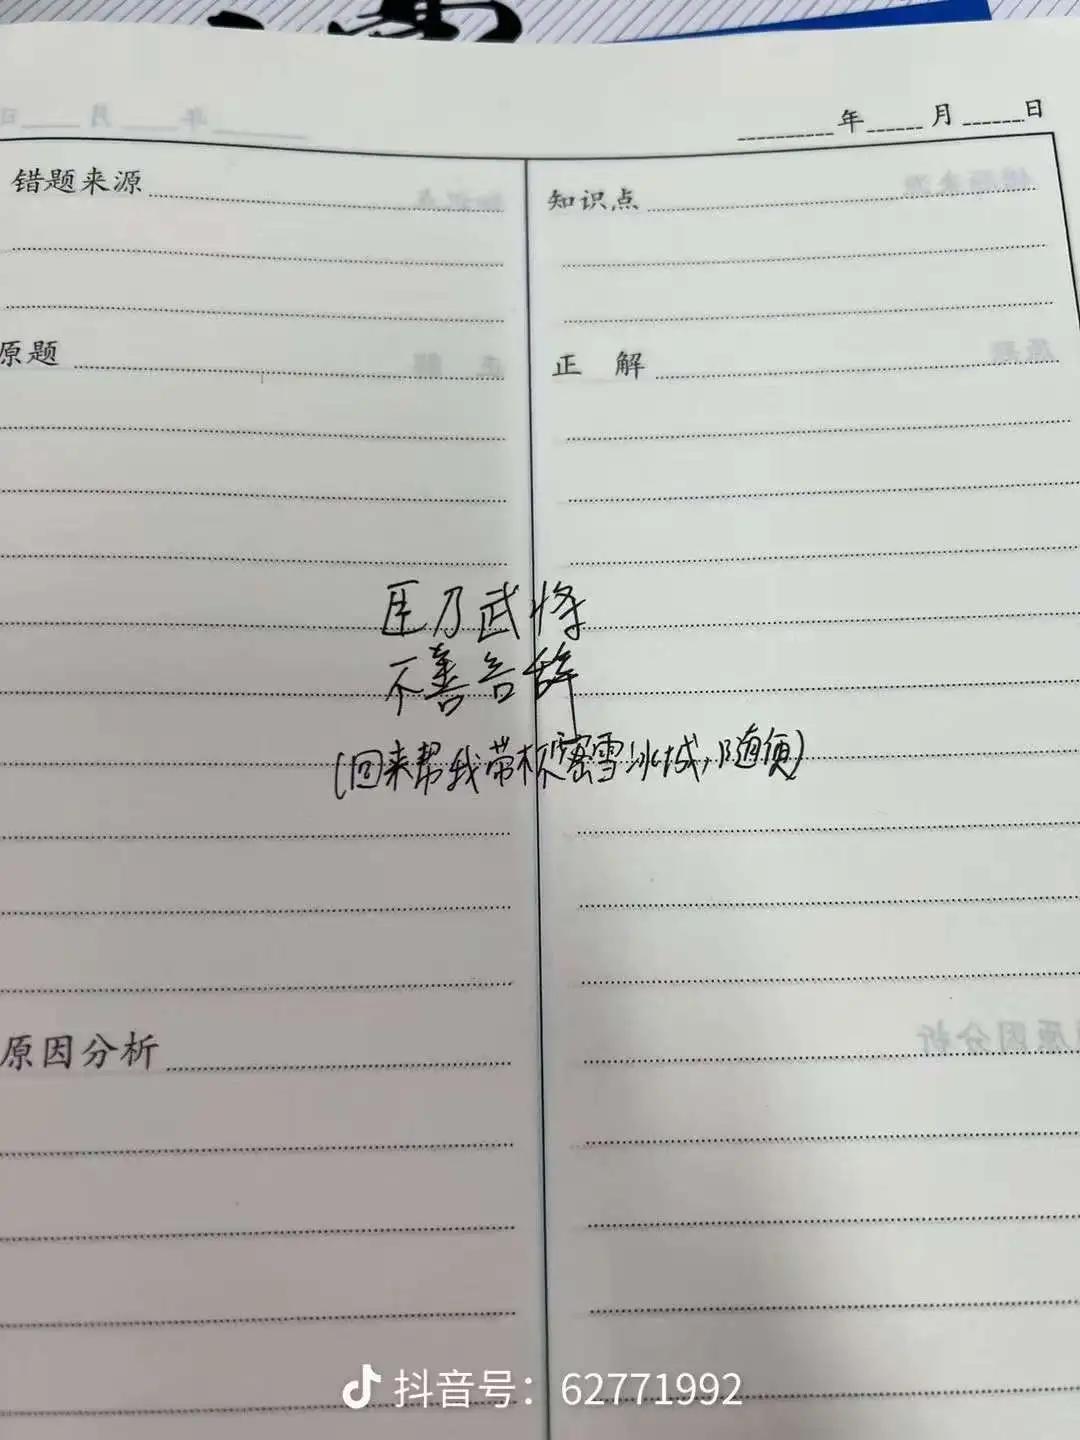 年 月 日
错题来源
知识点
原题
正 解
臣乃武将
不善告辞
(回来帮我带杯蜜雪冰城,随便)
原因分析
抖音号：62771992